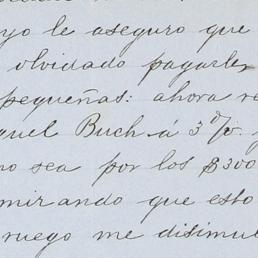 yo le aseguro que
olvidado pagarle,
pequeñas: ahora re
guel Buch á 3%.
no sea por los $300
mirando que esto
ruego me disimul